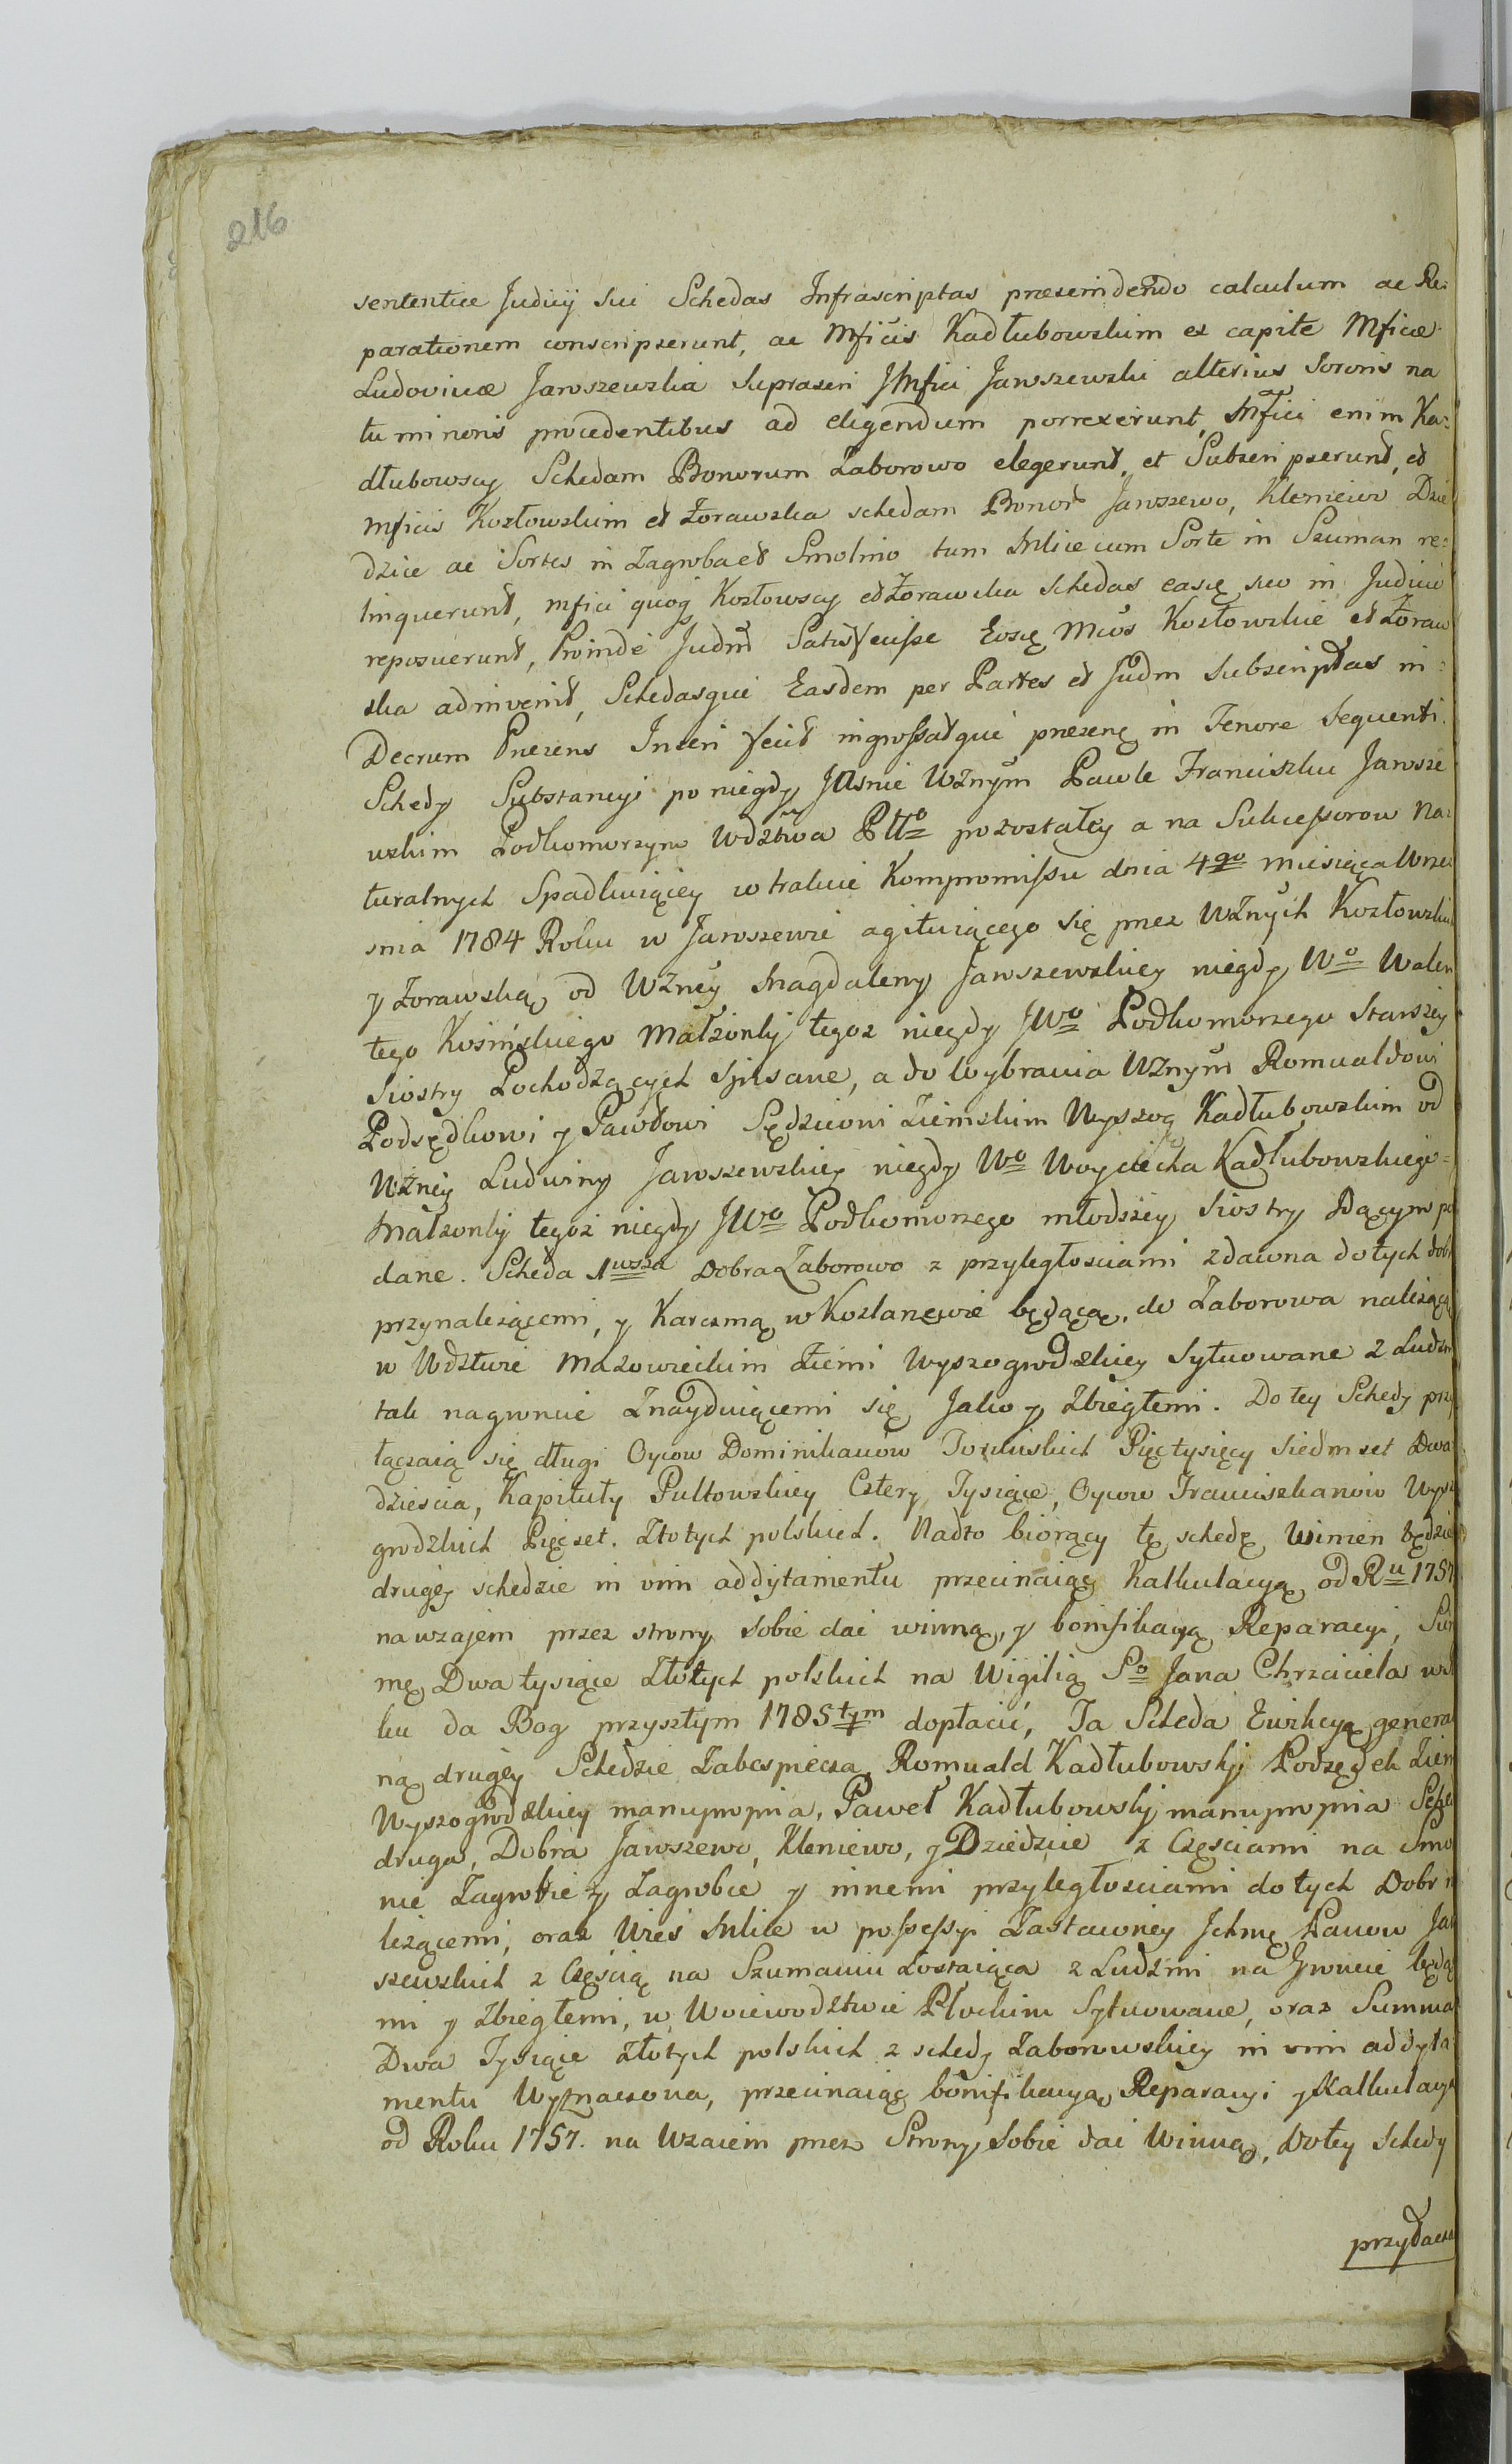 216
sententiæ Judicij sui Schedas Infrascriptas præscindendo calculum ac Re=
parationem conscripserunt, ac Mficis Kadłubowskim ex capite Mficæ
Ludovicæ Jaroszewska Suprascri JMfici Jaroszewski alterius Sororis na
tu minoris procedentibus ad eligendum porrexerunt, Mfici enim Ka=
dłubowscy Schedam Bonorum Zaborowo elegerunt, et Subscripserunt, et
Mficis Kozłowskim et Zorawska schedam Bonor Jaroszewo, Kleniewo Dzie
dzice ac Sortes in Zagroba et Smolino tum Mlice cum Sorte in Szuman re=
linquerunt, mfici quoq Kozłowscy et Zorawska Schedas easq suo in Judicio
reposuerunt, Proinde Judm Satisfecisse Eosq Mcos Kozłowskie et Zoraw
ska adinvenit, Schedasque Easdem per Partes et Judm Subscriptas in
Decrum Præzens Inseri fecit ingrossatque præzenq in Tenore Sequenti.
Schedy Substancyi po niegdy JAsnie Wznym Pawle Franciszku Jarosze
wskim Podkomorzym Wdztwa Płło pozostałey a na Sukcessorow Na=
turalnych Spadkuiącey w trakcie Kompromissu dnia 4go miesiąca Wrze
snia 1784 Roku w Jaroszewie agituiącego się przez Wznych Kozłowskich
y Zorawską od Wzney Magdaleny Jaroszewskiey niegdy Wo Walen
tego Kosińskiego Małzonki tegoz niegdy JWo Podkomorzego Starszey
Siostry Pochodzących Spisane, a do Wybrania Wznym Romualdowi
Podsędkowi y Pawłowi Sędziowi Ziemskim Wyszog Kadłubowskim od
Wzney Ludwiny Jaroszewskiey niegdy Wo Woyciecha Kadłubowskiego=
Małzonki tegoz niegdy JWo Podkomorzego młodszey Siostry Dącym po
dane. Scheda 1wsza Dobra Zaborowo z przyległosciami zdawna do tych dobr
przynalezącemi, y Karczmą w Kozlanęwie będącą, do Zaborowa nalezącą
w Wdztwie Mazowieckim Ziemi Wyszogrodzkiey Sytuowane z Ludzm
tak nagruncie Znayduiącemi się Jako y Zbiegłemi. Do tey Schedy przy
łączaią się długi Oycow Dominikanow Toruńskich Pięc tysięcy Siedmset Dwa
dziescia, Kapituły Pułtowskiey Cztery Tysiące, Oycow Franciszkanow Wysz
grodzkich Pięcset. Złotych polskich. Nadto biorący tę schedę Winien będzie
drugiey schedzie in vim addytamentu przecinaiąc Kalkulacyą od Ru 1757
nawzajem przez strony Sobie dac winną, y bonifikacyą Reparacyi, Sum
mę Dwa tysiące Złotych polskich na Wigilią So Jana Chrzciciela w Ro
ku da Bog przyszłym 1785tym dopłacić, Ta Scheda Ewikcyą genera
ną drugiey Schedzie Zabespiecza Romuald Kadłubowski Podsędek Ziem
Wyszogrodzkiey manupropria, Paweł Kadłubowski manupropria Sche
druga, Dobra Jaroszewo, Kleniewo, y Dziedzice z Częsciami na Smo
nie Zagrobie y Zagrobie y innemi przyległosciami do tych Dobr n
leżącemi, oraz Wies Mlice w possessyi Zastawney Ichmę Panow Jar
szewskich z Częscią na Szumaniu Zostaiąca z Ludzmi na Gruncie będą
mi y Zbiegłemi, w Woiewodztwie Płockim Sytuowane, oraz Summa
Dwa Tysiące złotych polskich z schedy Zaborowskiey in vim addyta
mentu Wyznaczona, przecinaiąc bonifikacyą Reparacyi y Kalkulacyą
od Roku 1757. na Wzaiem przez Strony Sobie dac Winną, Dotey Schedy
przydacza